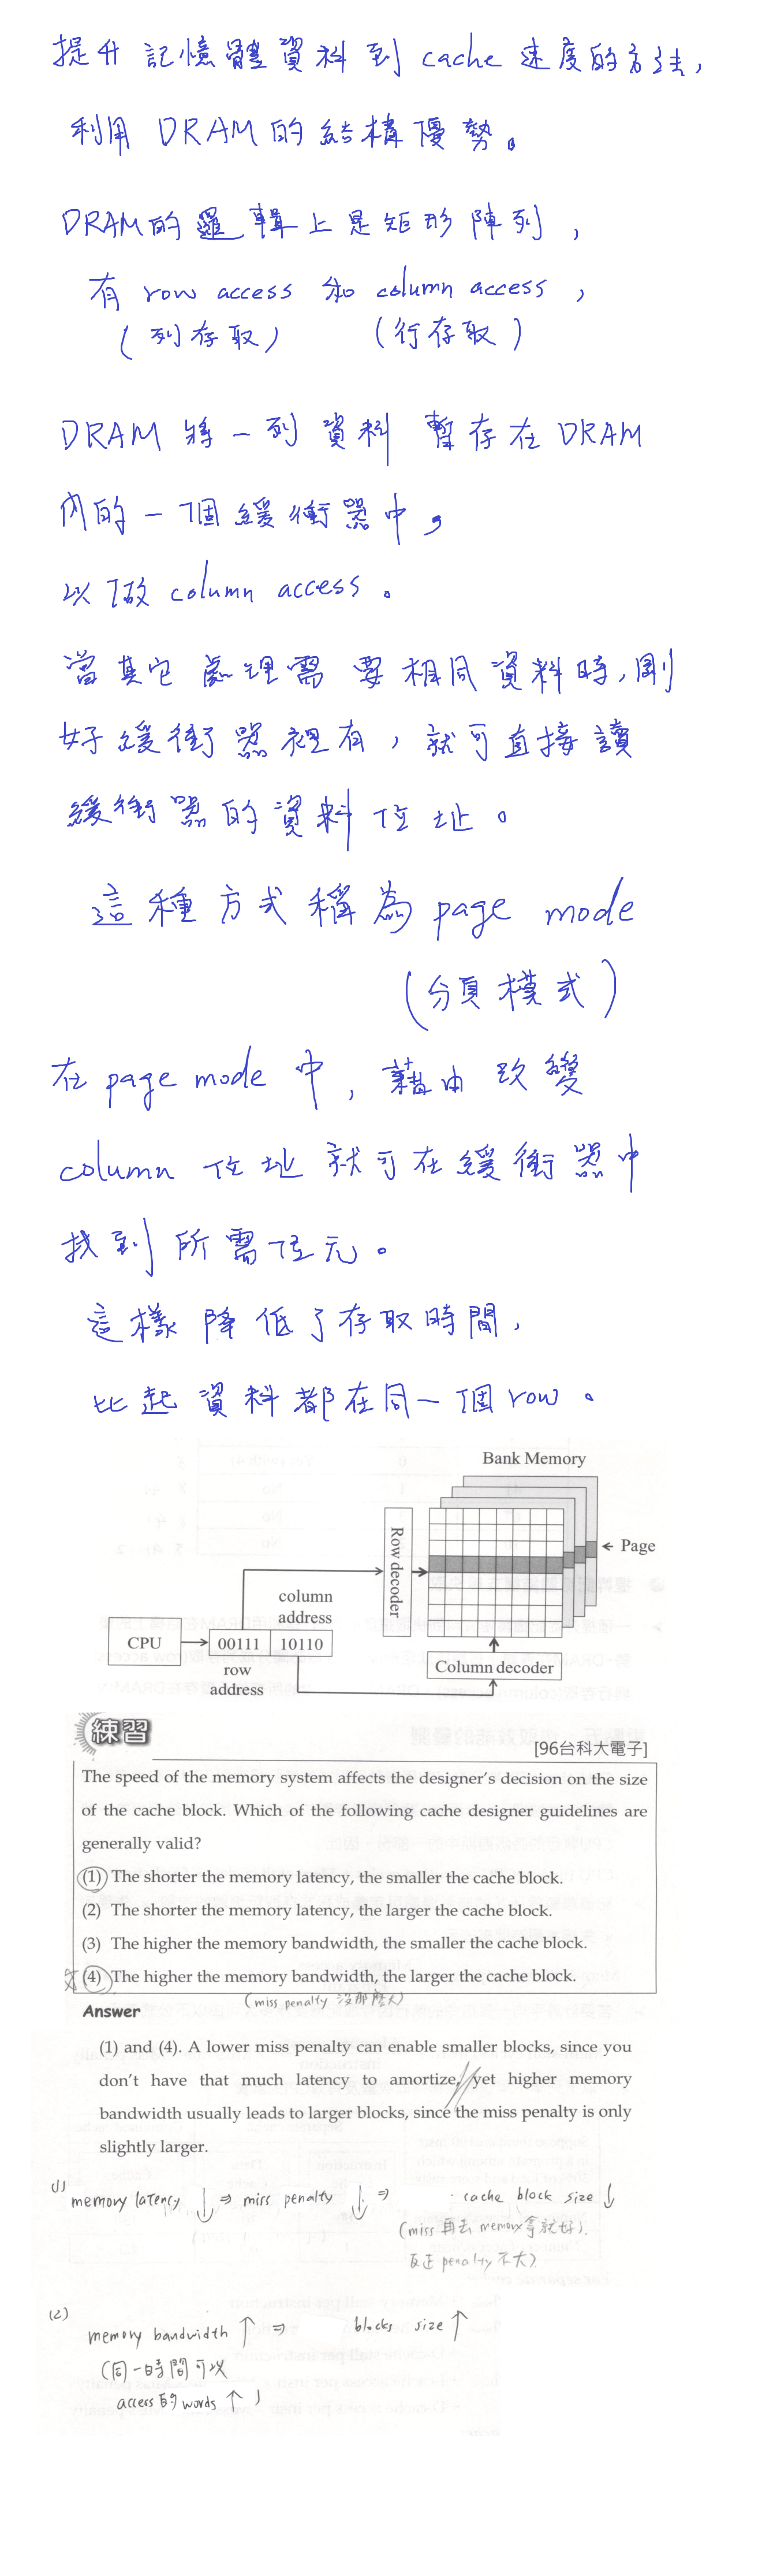 提升記憶體資料到 cache 速度的方法,
利用 DRAM 的結構優勢。
DRAM的邏輯上是矩形陣列,
有 row access 和 column access,
(列存取) (行存取)
DRAM 將一列資料 暫存在 DRAM
內的一個緩衝器中,
以做 column access。
當其它處理需要相同資料時,剛
好緩衝器裡有,就可直接讀
緩衝器的資料位址。
這種方式稱為 page mode
(分頁模式)
在 page mode 中, 藉由改變
column 位址就可在緩衝器中
找到所需位元。
這樣降低了存取時間,
比起資料都在同一個row。
Bank Memory
Row decoder
← Page
column
address
CPU
00111 10110
row
address
Column decoder
練習
[96台科大電子]
The speed of the memory system affects the designer's decision on the size
of the cache block. Which of the following cache designer guidelines are
generally valid?
(1) The shorter the memory latency, the smaller the cache block.
(2) The shorter the memory latency, the larger the cache block.
(3) The higher the memory bandwidth, the smaller the cache block.
(4) The higher the memory bandwidth, the larger the cache block.
(miss penalty 沒那麼大)
Answer
(1) and (4). A lower miss penalty can enable smaller blocks, since you
don't have that much latency to amortize, yet higher memory
bandwidth usually leads to larger blocks, since the miss penalty is only
slightly larger.
(1) memory latency ↓ ⇒ miss penalty ↓ ⇒ cache block size ↓
(miss 再去 memory 拿就好).
反正 penalty 不大)
(2) memory bandwidth ↑ ⇒ blocks size ↑
(同一時間可以
access 的 words ↑)